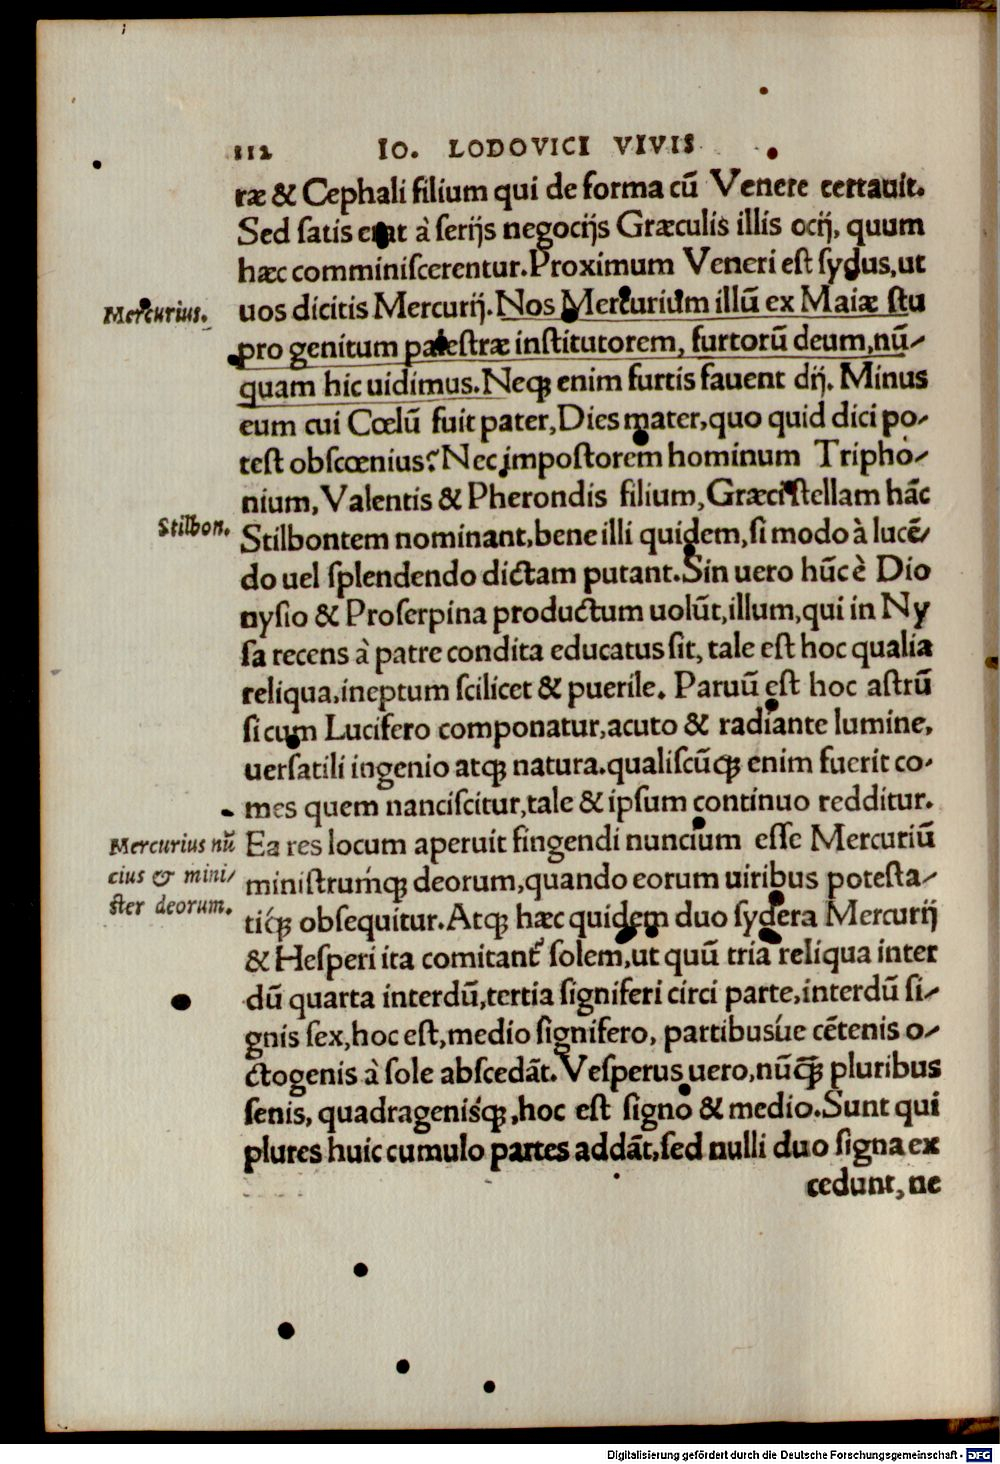 112 IO. LODOVICI VIVIS
ræ & Cephali filium qui de forma cū Venere certauit.
Sed ſatis erat à ſerijs negocijs Græculis illis ocij, quum
hæc comminiſcerentur. Proximum Veneri eſt ſydus, ut
Mercurius.
uos dicitis Mercurij. Nos Mercurium illū ex Maiæ ſtu
pro genitum paleſtræ inſtitutorem, furtorū deum, nū-
quam hic uidimus. Neqꝫ enim furtis fauent dij. Minus
eum cui Cœlū fuit pater, Dies mater, quo quid dici po-
teſt obſcœnius? Nec impoſtorem hominum Tripho-
nium, Valentis & Pherondis filium, Græci ſtellam hāc
Stilbon.
Stilbontem nominant, bene illi quidem, ſi modo à lucē-
do uel ſplendendo dictam putant. Sin uero hūc è Dio
nyſio & Proſerpina productum uolūt, illum, qui in Ny
ſa recens à patre condita educatus ſit, tale eſt hoc qualia
reliqua, ineptum ſcilicet & puerile. Paruū eſt hoc aſtrū
ſi cum Lucifero componatur, acuto & radiante lumine,
uerſatili ingenio atqꝫ natura. qualiſcūqꝫ enim fuerit co-
mes quem nanciſcitur, tale & ipſum continuo redditur.
Mercurius nū
cius & mini-
ſter deorum.
Ea res locum aperuit fingendi nuncium eſſe Mercuriū
miniſtrumqꝫ deorum, quando eorum uiribus poteſta-
tiqꝫ obſequitur. Atqꝫ hæc quidem duo ſydera Mercurij
& Heſperi ita comitant᷑ ſolem, ut quū tria reliqua inter
dū quarta interdū, tertia ſigniferi circi parte, interdū ſi-
gnis ſex, hoc eſt, medio ſignifero, partibusúe cētenis o-
ctogenis à ſole abſcedāt. Veſperus uero, nūq̄ꝫ pluribus
ſenis, quadragenisqꝫ, hoc eſt ſigno & medio. Sunt qui
plures huic cumulo partes addāt, ſed nulli duo ſigna ex
cedunt, ne
Digitalisierung gefördert durch die Deutsche Forschungsgemeinschaft - DFG